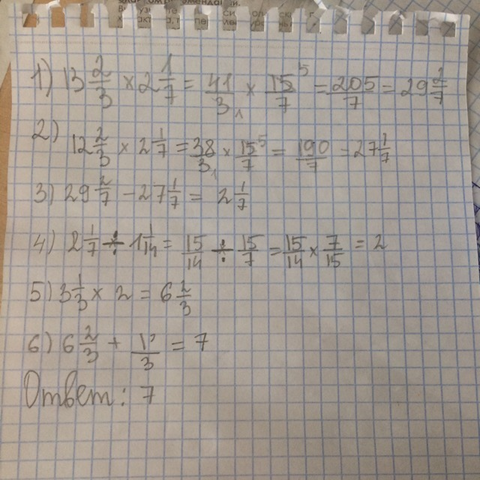 1) 13 2/3 × 2 1/7 = 41/3 × 15/7 = 205/7 = 29 2/7
2) 12 2/3 × 2 1/7 = 38/3 × 15/7 = 190/7 = 27 1/7
3) 29 2/7 − 27 1/7 = 2 1/7
4) 2 1/7 ÷ 1 1/14 = 15/14 ÷ 15/7 = 15/14 × 7/15 = 2
5) 3 1/3 × 2 = 6 2/3
6) 6 2/3 + 1/3 = 7
Ответ: 7